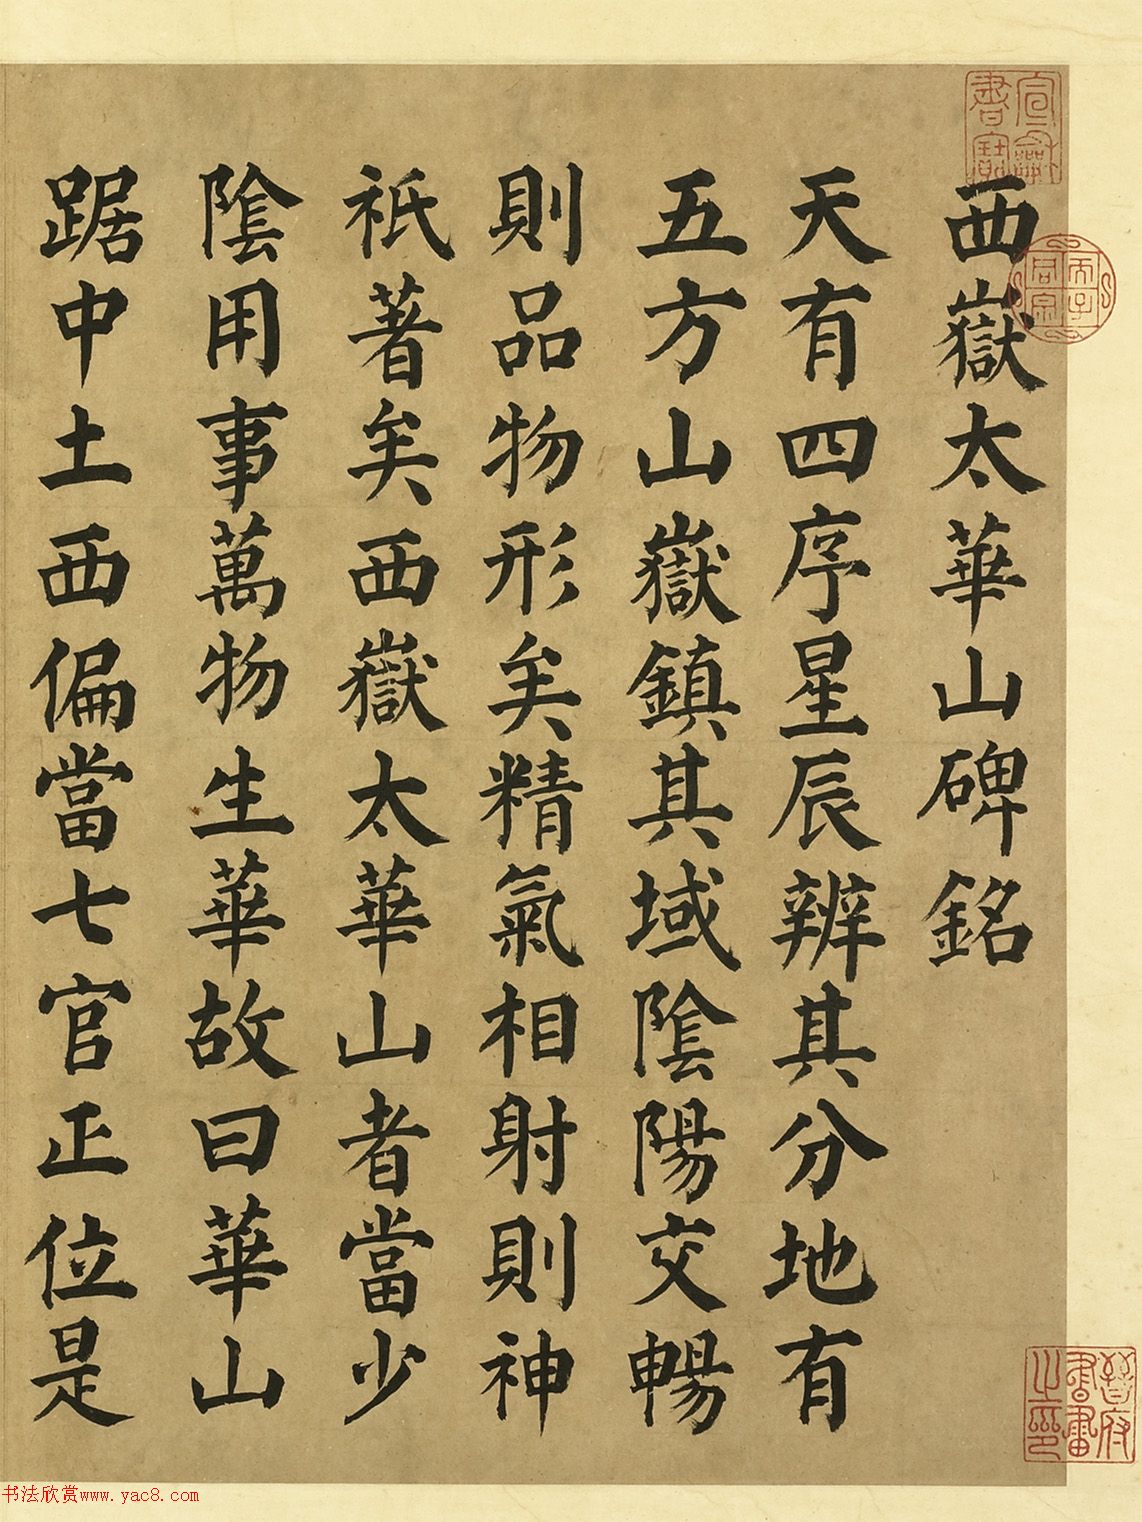 西嶽太華山碑銘
天有四序星辰辨其分地有
五方山嶽鎮其域陰陽交暢
則品物形矣精氣相射則神
祇著矣西嶽太華山者當少
陰用事萬物生華故曰華山
踞中土西偏當七宮正位是
宣龢書寶
晉府書畫之印
书法欣赏www.yac8.com